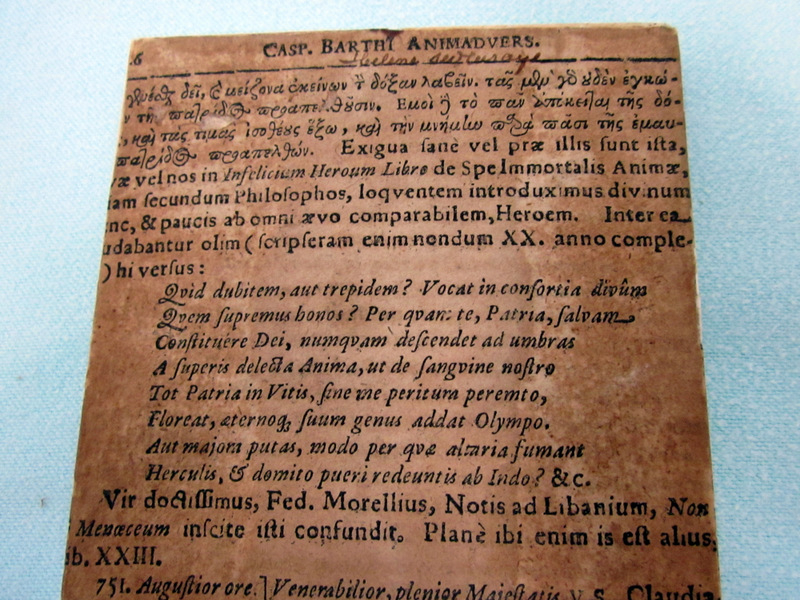 6 CASP. BARTHI ANIMADVERS.
δεῖ, μείζονα ἐκείνων δόξαν λαβεῖν. ταῖς μὲν γὸ οὐδὲν ἐγκώ-
τῇ πατρίδΘ Ἐμοὶ τὸ παν τῆς δό-
, καὶ τὰς τιμας ἰσοθέους ἔξω, καὶ τὴν μνήμην πᾶσι τῆς ἐμαυ-
πατρίδΘ Exigua sanè vel præ illis sunt ista,
væ vel nos in Infelicium Heroum Libro de Spe Immortalis Animæ,
iam secundum Philosophos, loqventem introduximus divinum
nc, & paucis ab omni ævo comparabilem, Heroem. Inter ea
dabantur olim ( scripseram enim nondum XX. anno comple-
) hi versus:
Qvid dubitem, aut trepidem? Vocat in consortia divûm
Qvem supremus honos? Per qvam te, Patria, salvam
Constituére Dei, numqvam descendet ad umbras
A superis delecta Anima, ut de sangvine nostro
Tot Patria in Vitis, sine me peritura peremto,
Floreat, æternoq; suum genus addat Olympo.
Aut majora putas, modo per qvæ altaria fumant
Herculis, & domito pueri redeuntis ab Indo? &c.
Vir doctissimus, Fed. Morellius, Notis ad Libanium, Non
Menœceum inscite isti confundit. Planè ibi enim is est alius,
ib. XXIII.
751. Augustior ore.] Venerabilior, plenior Majestatis v. s. Claudia